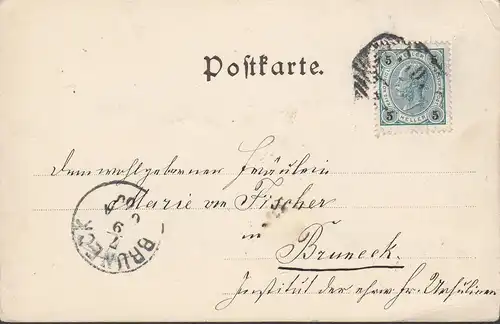 Postkarte.
5 5
5 HELLER 5
Dem wohlgebornen Fräulein
Marie von Fischer
in
Bruneck.
Institut der ehrw. Fr. Ursulinen
BRUNECK
7 9